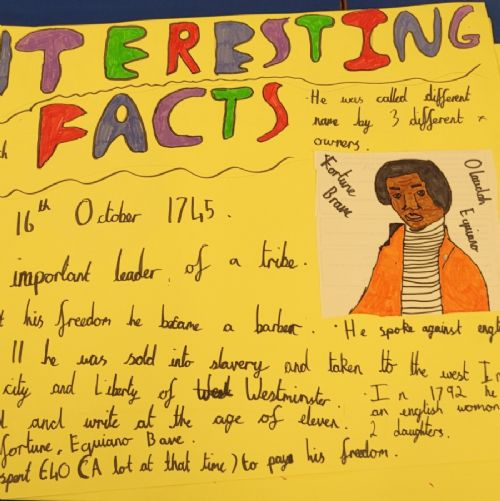 NTERESTING
FACTS
He was called different
name by 3 different
owners.
Fortune
Brave
Olaudah
Equiano
16th October 1745.
important leader of a tribe.
his freedom he became a barber. · He spoke against engl
11 he was sold into slavery and taken to the west In
city and Liberty of Westminster · In 1792 he
and write at the age of eleven. an english woman
fortune, Equiano Bave. 2 daughters.
spent £40 (A lot at that time) to pay his freedom.